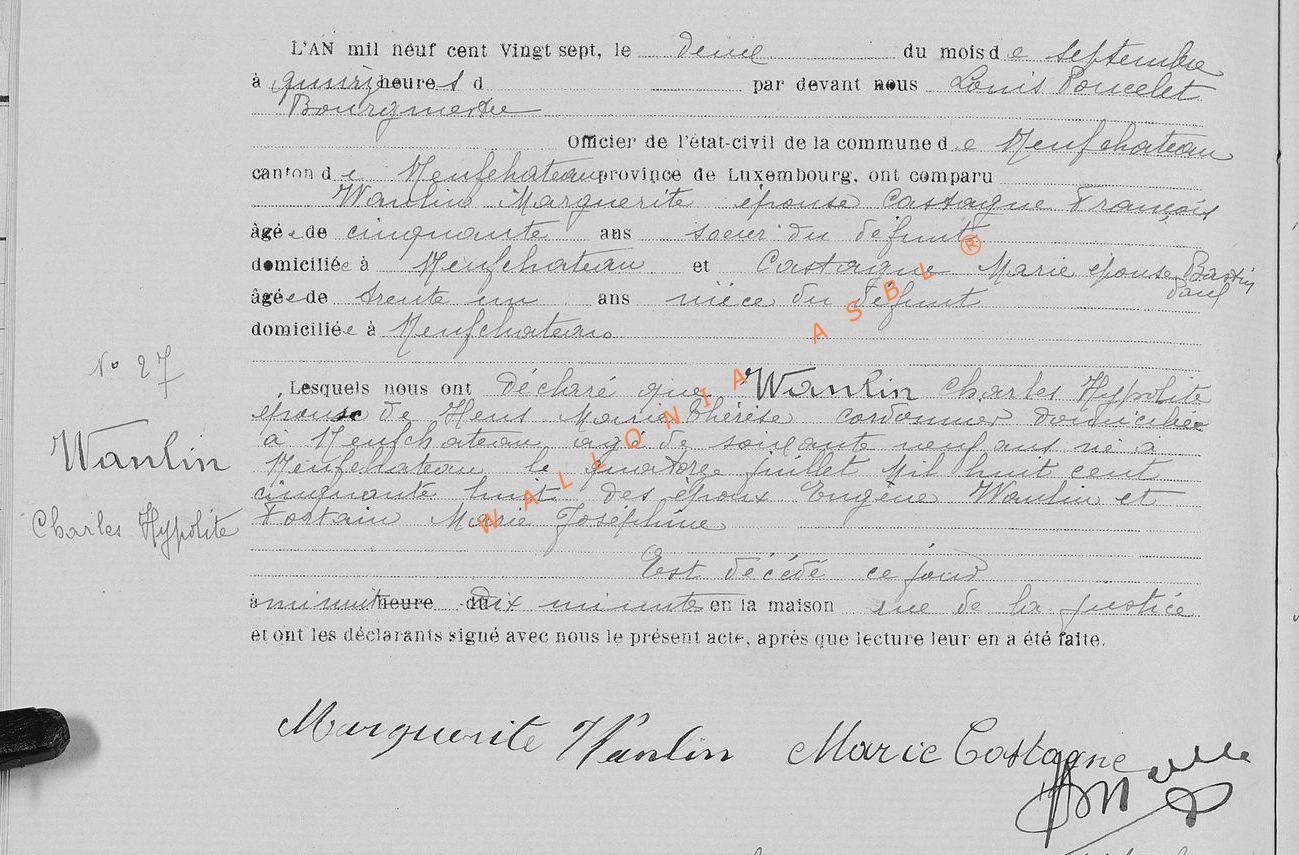 L'AN mil neuf cent Vingt sept, le deux du mois de septembre
à quinze heures d par devant nous Louis Poncelet
Bourgmestre
Officier de l'état-civil de la commune de Neufchateau
canton de Neufchateau province de Luxembourg, ont comparu
Wanlin Marguerite épouse Castagne François
âgée de cinquante ans soeur du défunt
domiciliée à Neufchateau et Castagne Marie épouse Bastin
Paul
âgée de trente un ans nièce du défunt
domiciliée à Neufchateau
No 27
Lesquels nous ont déclaré que Wanlin Charles Hypolite
épouse de Hens Marie Thérèse cordonnier domicilié
à Neufchateau agé de soixante neuf ans né à
Wanlin
Neufchateau le quatorze juillet mil huit cent
cinquante huit des époux Eugène Wanlin et
Charles Hypolite
Fostain Marie Joséphine
Est décédé ce jour
à minuit heure dix minutes en la maison rue de la justice
et ont les déclarants signé avec nous le présent acte, après que lecture leur en a été faite.
Marguerite Wanlin Marie Castagne
WALLONIA ASBL ®